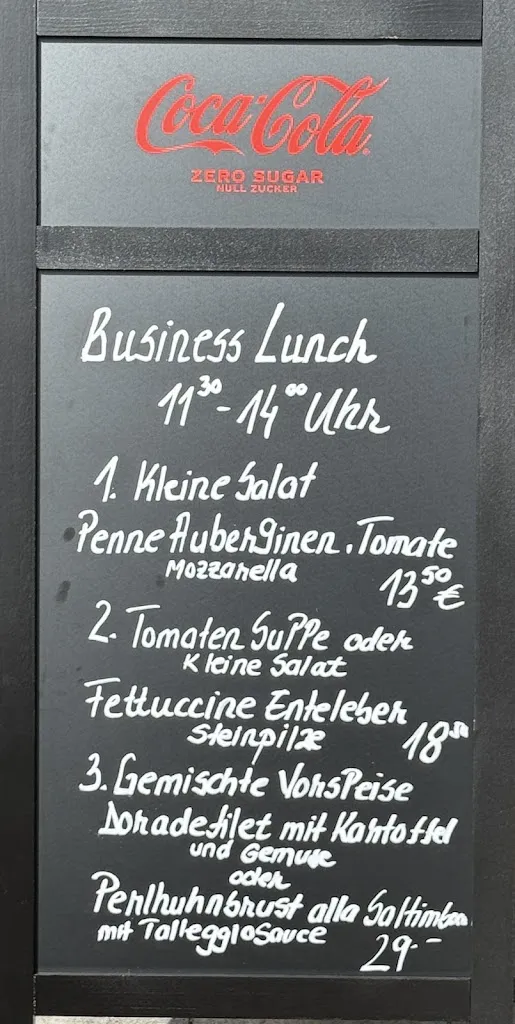 Coca-Cola
ZERO SUGAR
NULL ZUCKER
Business Lunch
11³⁰ - 14⁰⁰ Uhr
1. Kleine Salat
Penne Auberginen, Tomate
Mozzarella
13⁵⁰ €
2. Tomaten Suppe oder
Kleine Salat
Fettuccine Enteleber
Steinpilze
18⁵⁰
3. Gemischte Vorspeise
Doradefilet mit Kartoffel
und Gemuse
oder
Perlhuhnbrust alla Saltimboa
mit Talleggiosauce
29.-